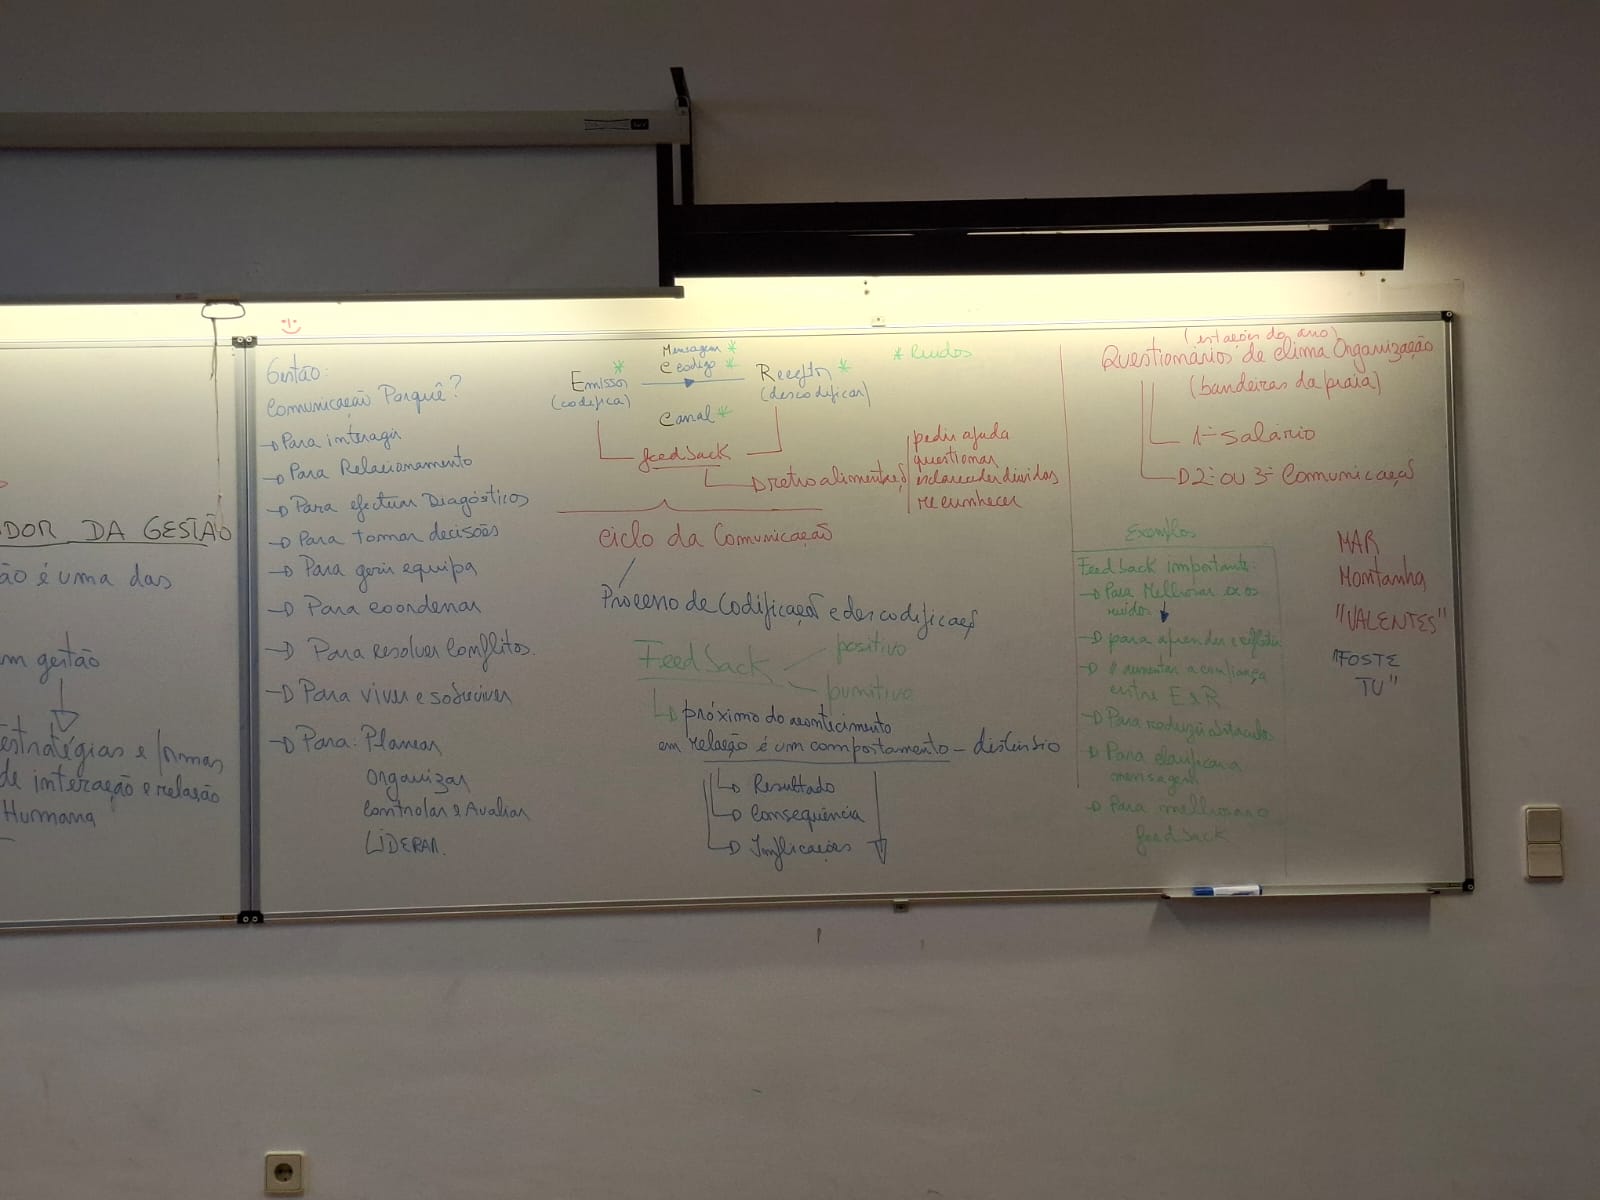 DOR DA GESTÃO
ão é uma das
m gestão
estratégias e formas
de interação e relação
Humana
Gestão:
Comunicação Porquê?
→ Para interagir
→ Para Relacionamento
→ Para efectuar Diagósticos
→ Para tomar decisões
→ Para gerir equipa
→ Para coordenar
→ Para resolver Conflitos.
→ Para viver e sobreviver
→ Para: Planear
Organizar
Controlar e Avaliar
LIDERAR.
Mensagem *
* Codigo *
Emissor → Receptor *
(codifica) (descodificar)
Canal *
* Ruídos
feedback
→ retroalimentação
pedir ajuda
questionar
esclarecer dúvidas
reconhecer
ciclo da Comunicação
Processo de Codificação e descodificação
Feedback
positivo
punitivo
→ próximo do acontecimento
em relação é um comportamento - distúrbio
→ Resultado
→ Consequência
→ Implicações
(estações do ano)
Questionários de clima Organização
(bandeiras da praia)
1º salário
→ 2º ou 3º Comunicação
Exemplos
Feedback importante:
→ Para Melhorar os
ruidos
→ para aprender e
→ aumentar a confiança
entre E x R
→ Para redução
→ Para clarificar a
mensagem
→ Para melhorar o
feedback
MAR
Montanha
"VALENTES"
"FOSTE
TU"